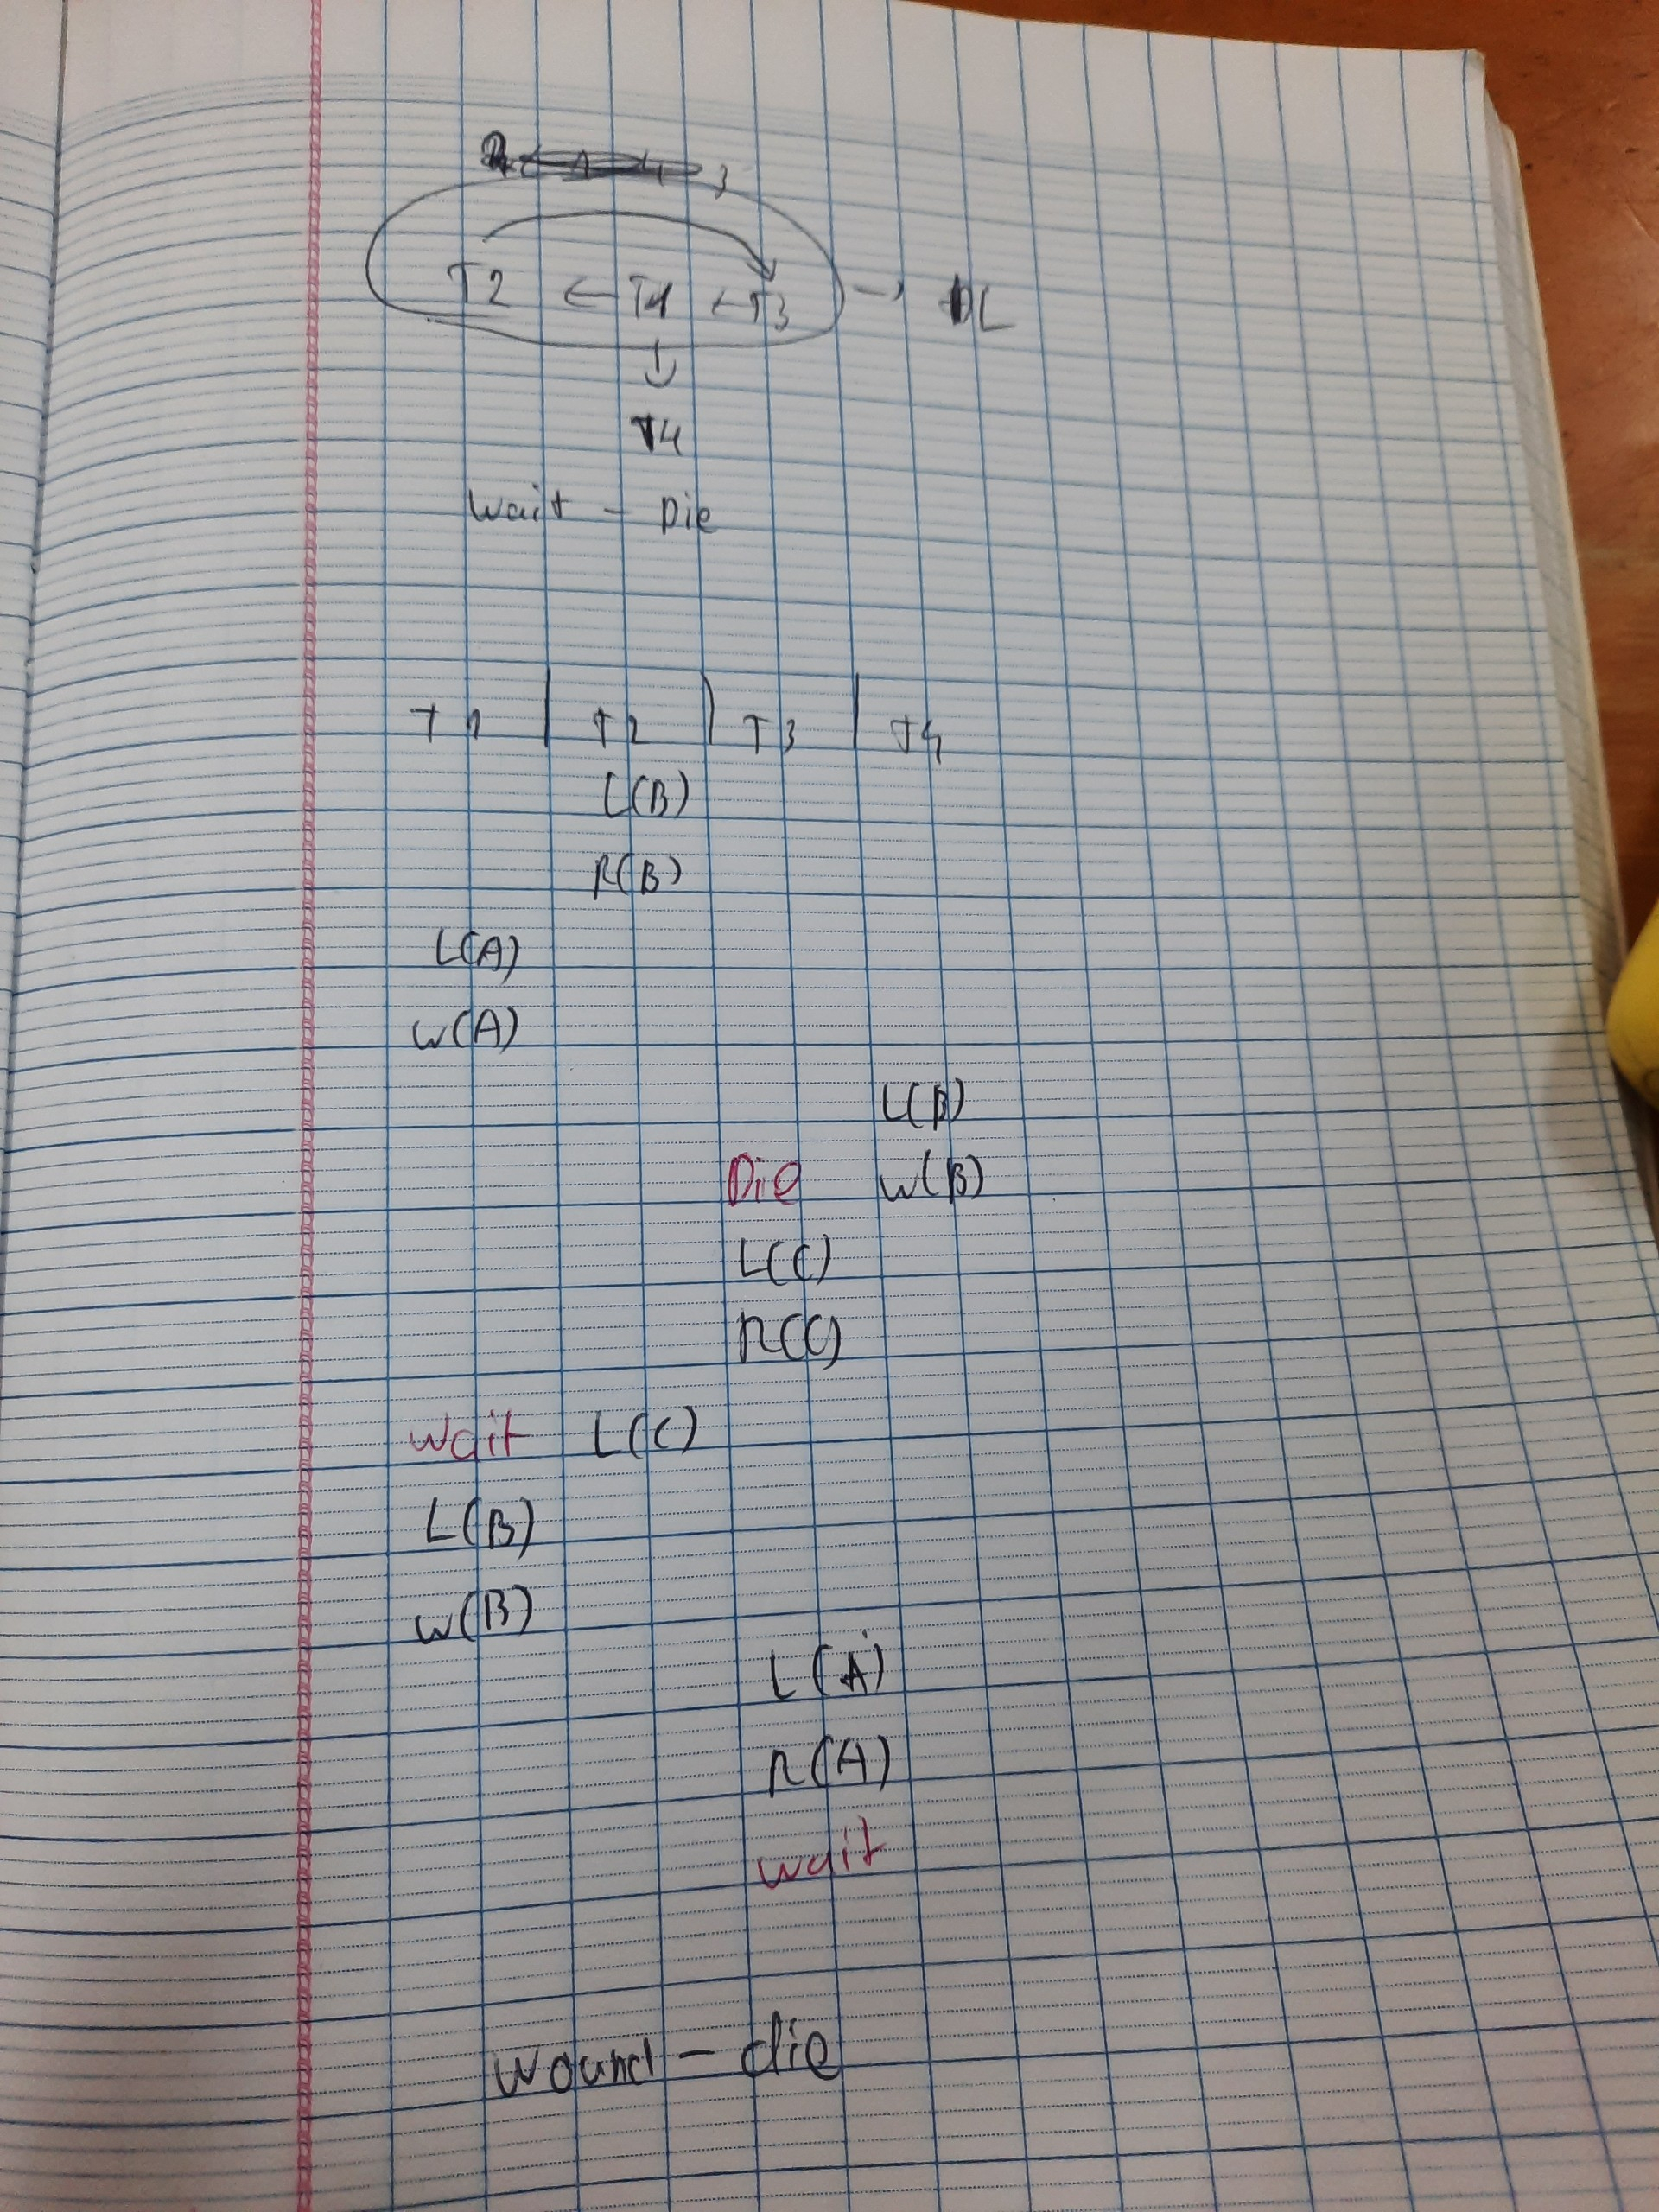 T2 ← T1 ← T3 → DL
↓
T4
Wait - Die
T1 | T2 | T3 | T4
L(B)
R(B)
L(A)
W(A)
L(B)
Die W(B)
L(C)
R(C)
wait L(C)
L(B)
W(B)
L(A)
R(A)
wait
wound - die